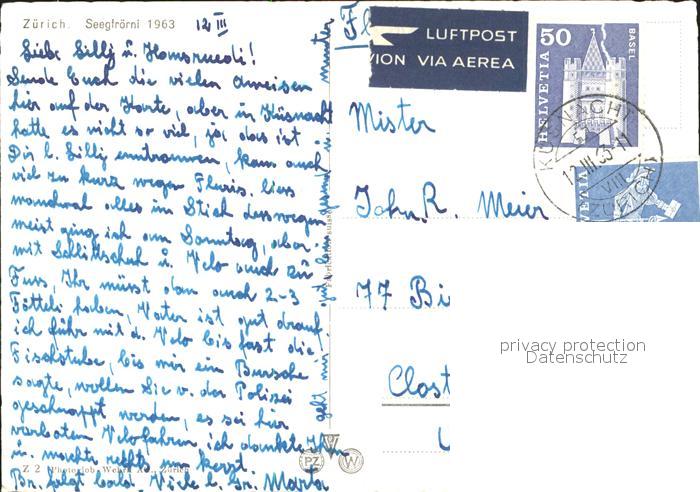 Zürich. Seegfrörni 1963 12 III
Liebe Silly u. Hansruedi!
Sende Euch die vielen Ameisen
hier auf der Karte, aber in Küsnacht
hatte es nicht so viel, ja, das ist
Dir l. Silly kam auch
viel zu kurz wegen liess
manchmal alles im Stich deswegen
meist ging ich am Sonntag, aber
mit Schlittschuh u. Velo auch zu
Fuss, Ihr müsst dan auch 2-3
Fötteli haben, Vater ist gut drauf.
ich führ mit d. Velo bis fast die
Fischstube, bis mir ein Bursche
sagte, wollen Sie v. der Polizei
geschnappt werden, es sei hier
verboten Velofahren, ich dankte Ihm
u. machte rechts um kerzt.
Br. folgt bald Viele l. Gr. Marta
geht mir gut
munter
Z 2
PZ W
LUFTPOST
VION VIA AEREA
50
HELVETIA
BASEL
KÜSNACHT
12.III.63-11
VIII
(ZÜRICH)
HELVETIA
Mister
John. R. Meier
77 Bi
Clost
privacy protection
Datenschutz